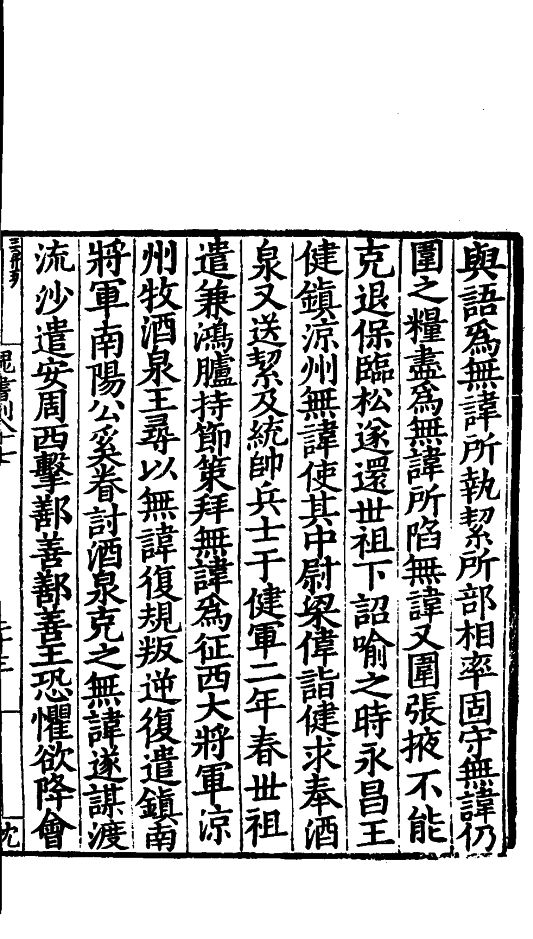 與語爲無諱所執絜所部相率固守無諱仍
圍之糧盡爲無諱所陷無諱又圍張掖不能
克退保臨松遂還世祖下詔喻之時永昌王
健鎮涼州無諱使其中尉梁偉詣健求奉酒
泉又送絜及統帥兵士于健軍二年春世祖
遣兼鴻臚持節策拜無諱爲征西大將軍涼
州牧酒泉王尋以無諱復規叛逆復遣鎮南
將軍南陽公奚眷討酒泉克之無諱遂謀渡
流沙遣安周西擊鄯善鄯善王恐懼欲降會